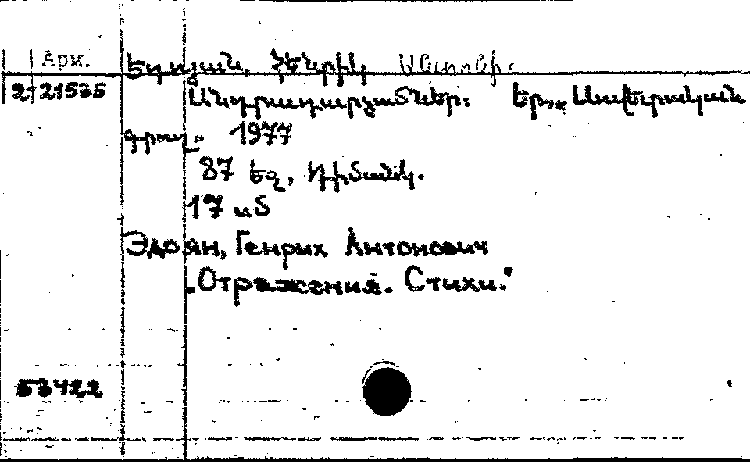 Арм. Եդոյան, Հենրիկ Անտոնի.
2-21535 Անդրադարձումներ. Եր., Սովետական
գրող. 1977
87 եզ. դիմանկ.
17 սմ
Эдоян, Генрих Антонович
„Отражения. Стихи."
53422